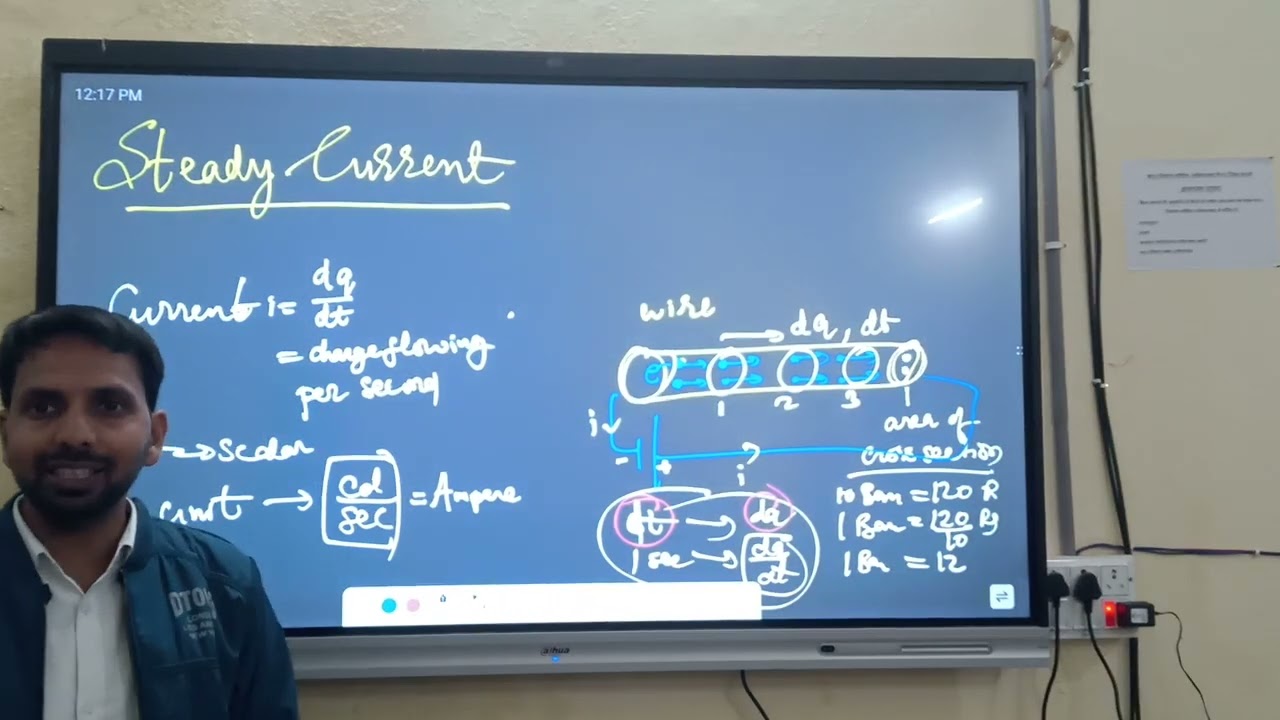 12:17 PM
Steady Current
Current i = dq/dt
= charge flowing
per second
→ scalar
unit → col/sec = Ampere
wire
→ dq, dt
1 2 3
area of
cross section
i
- +
i
dt → dq
1 sec → dq/dt
10 Ban = 120 R
1 Ban = 120/10 Rs
1 Ban = 12
DTOH
alhua